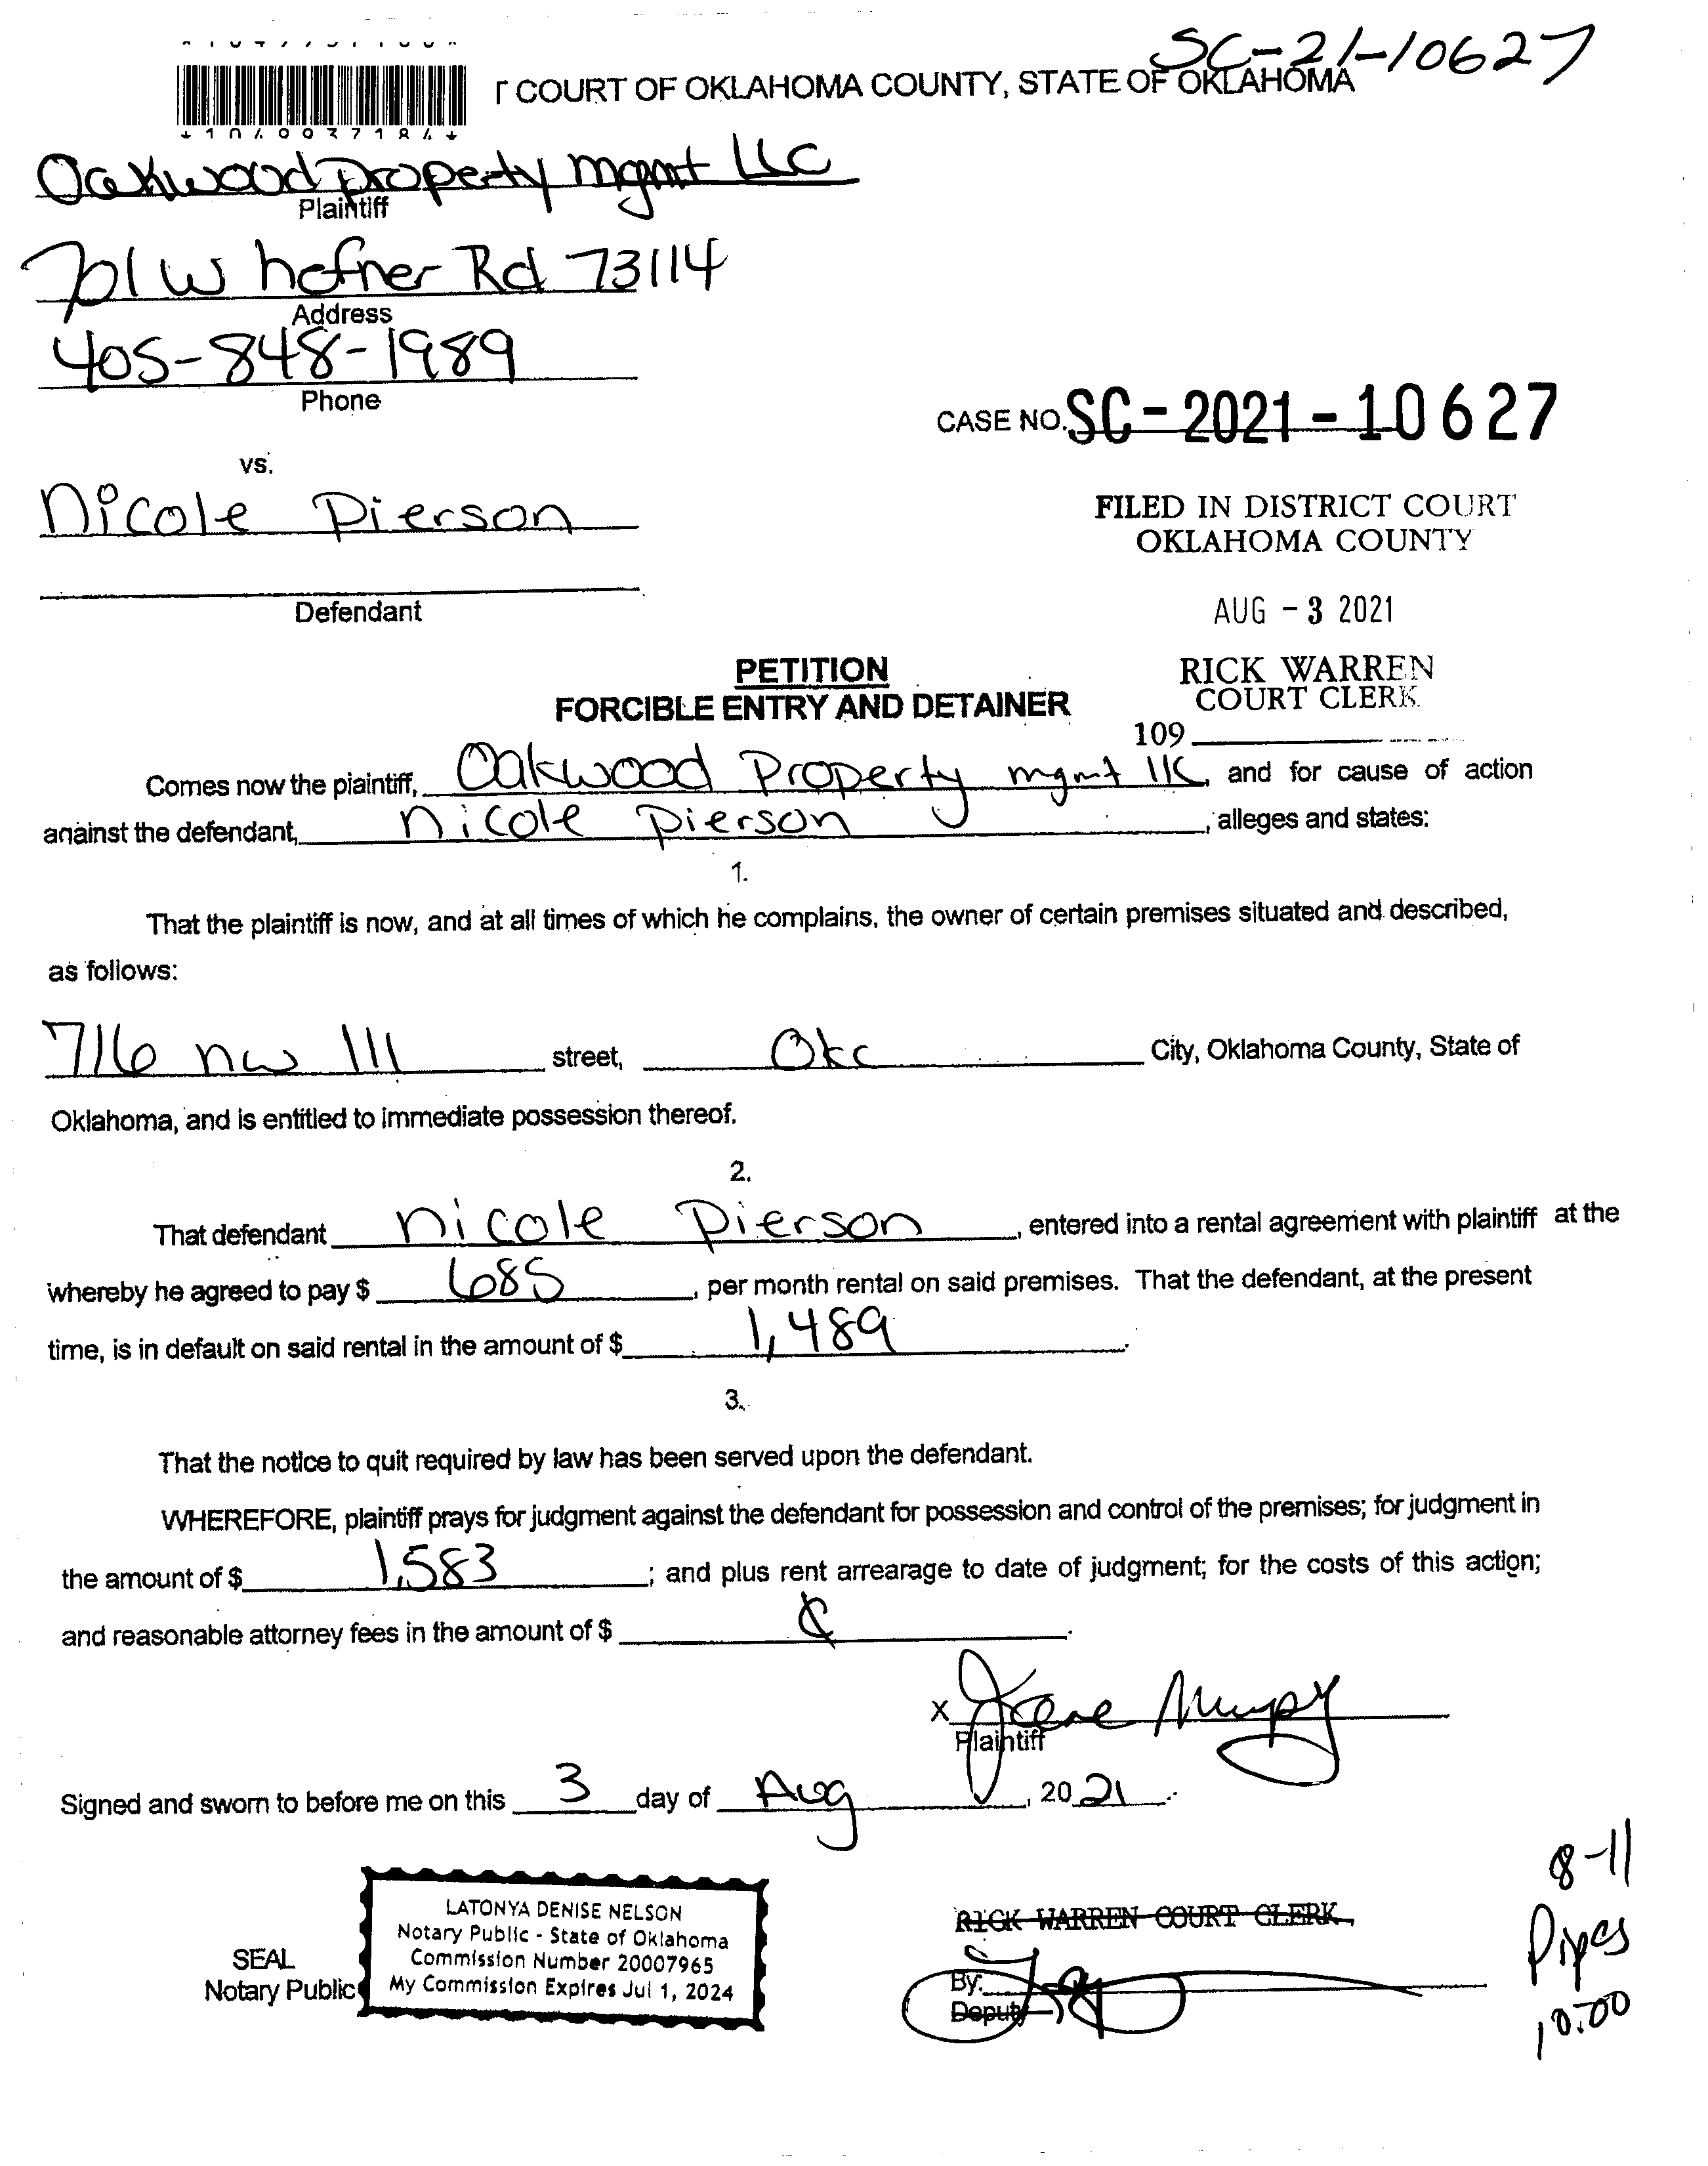 SC-21-10627
T COURT OF OKLAHOMA COUNTY, STATE OF OKLAHOMA
Oakwood Property mgmt LLC
Plaintiff
701 W hefner Rd 73114
Address
405-848-1989
Phone
CASE NO. SC-2021-10627
vs.
Nicole Pierson
FILED IN DISTRICT COURT
OKLAHOMA COUNTY
Defendant
AUG - 3 2021
PETITION
FORCIBLE ENTRY AND DETAINER
RICK WARREN
COURT CLERK
109
Comes now the plaintiff, Oakwood Property mgmt llc, and for cause of action
against the defendant, Nicole Pierson, alleges and states:
1.
That the plaintiff is now, and at all times of which he complains, the owner of certain premises situated and described,
as follows:
716 nw 111 street, Okc City, Oklahoma County, State of
Oklahoma, and is entitled to immediate possession thereof.
2.
That defendant Nicole Pierson, entered into a rental agreement with plaintiff at the
whereby he agreed to pay $ 685, per month rental on said premises. That the defendant, at the present
time, is in default on said rental in the amount of $ 1,489.
3.
That the notice to quit required by law has been served upon the defendant.
WHEREFORE, plaintiff prays for judgment against the defendant for possession and control of the premises; for judgment in
the amount of $ 1,583; and plus rent arrearage to date of judgment; for the costs of this action;
and reasonable attorney fees in the amount of $
X
Plaintiff
Signed and sworn to before me on this 3 day of Aug, 2021.
8-11
LATONYA DENISE NELSON
Notary Public - State of Oklahoma
Commission Number 20007965
My Commission Expires Jul 1, 2024
SEAL
Notary Public
RICK WARREN COURT CLERK
By:
Deputy
10.00